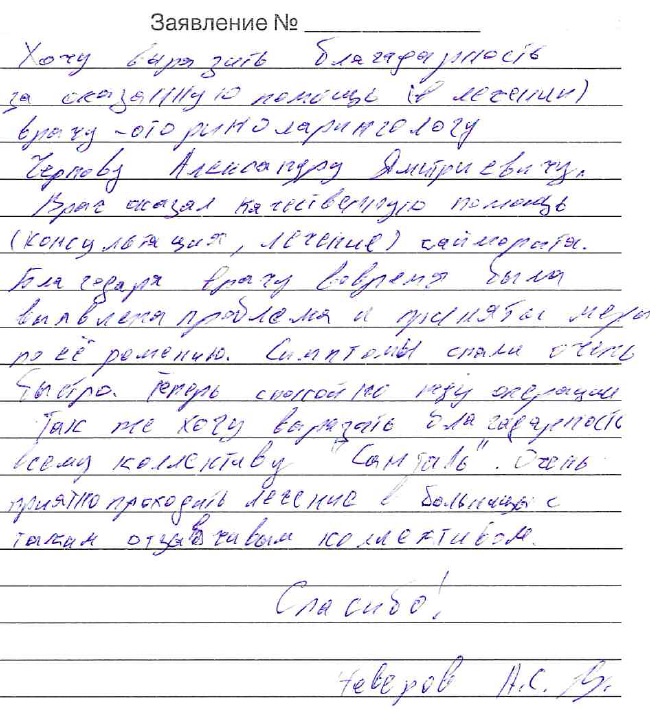 Заявление № ____________
Хочу выразить благодарность
за оказанную помощь (в лечении)
врачу-оториноларингологу
Чернову Александру Дмитриевичу.
Врач оказал качественную помощь
(консультация, лечение) гайморита.
Благодаря врачу вовремя была
выявлена проблема и приняты меры
по её решению. Симптомы спали очень
быстро. Теперь спокойно жду операции
Так же хочу выразить благодарность
всему коллективу "Сантавь". Очень
приятно проходить лечение в больнице с
таким отзывчивым коллективом.
Спасибо!
А.С.